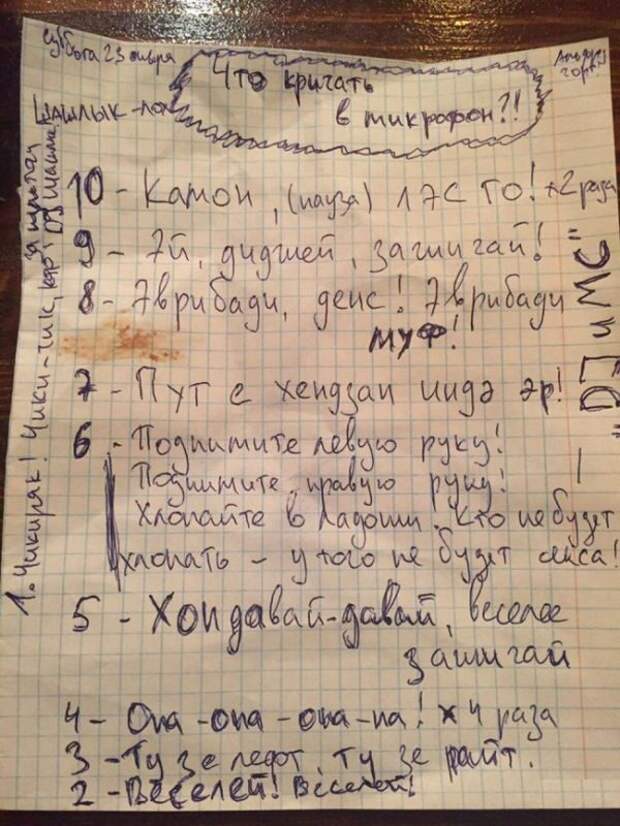 Суббота 23 января
Что кричать
в микрофон?!
ШАШЛЫК-
10 - Камон, (пауза) ЛЭС ГО! х2 раза
9 - Эй, диджей, зажигай!
8 - Эврибади, денс! Эврибади
муф!
7 - Пут е хендзап инидэ эр!
6 - Поднимите левую руку!
Поднимите правую руку!
Хлопайте в ладоши! Кто не будет
хлопать - у того не будет секса!
5 - Хоп давай-давай, веселее
зажигай
4 - Опа-опа-опа-па! х 4 раза
3 - Ту зе лефт, ту зе райт.
2 - Веселей! Веселей!
1. Чикиряк! Чики-тик,
за пультом
DJ
— "DJ и МС"